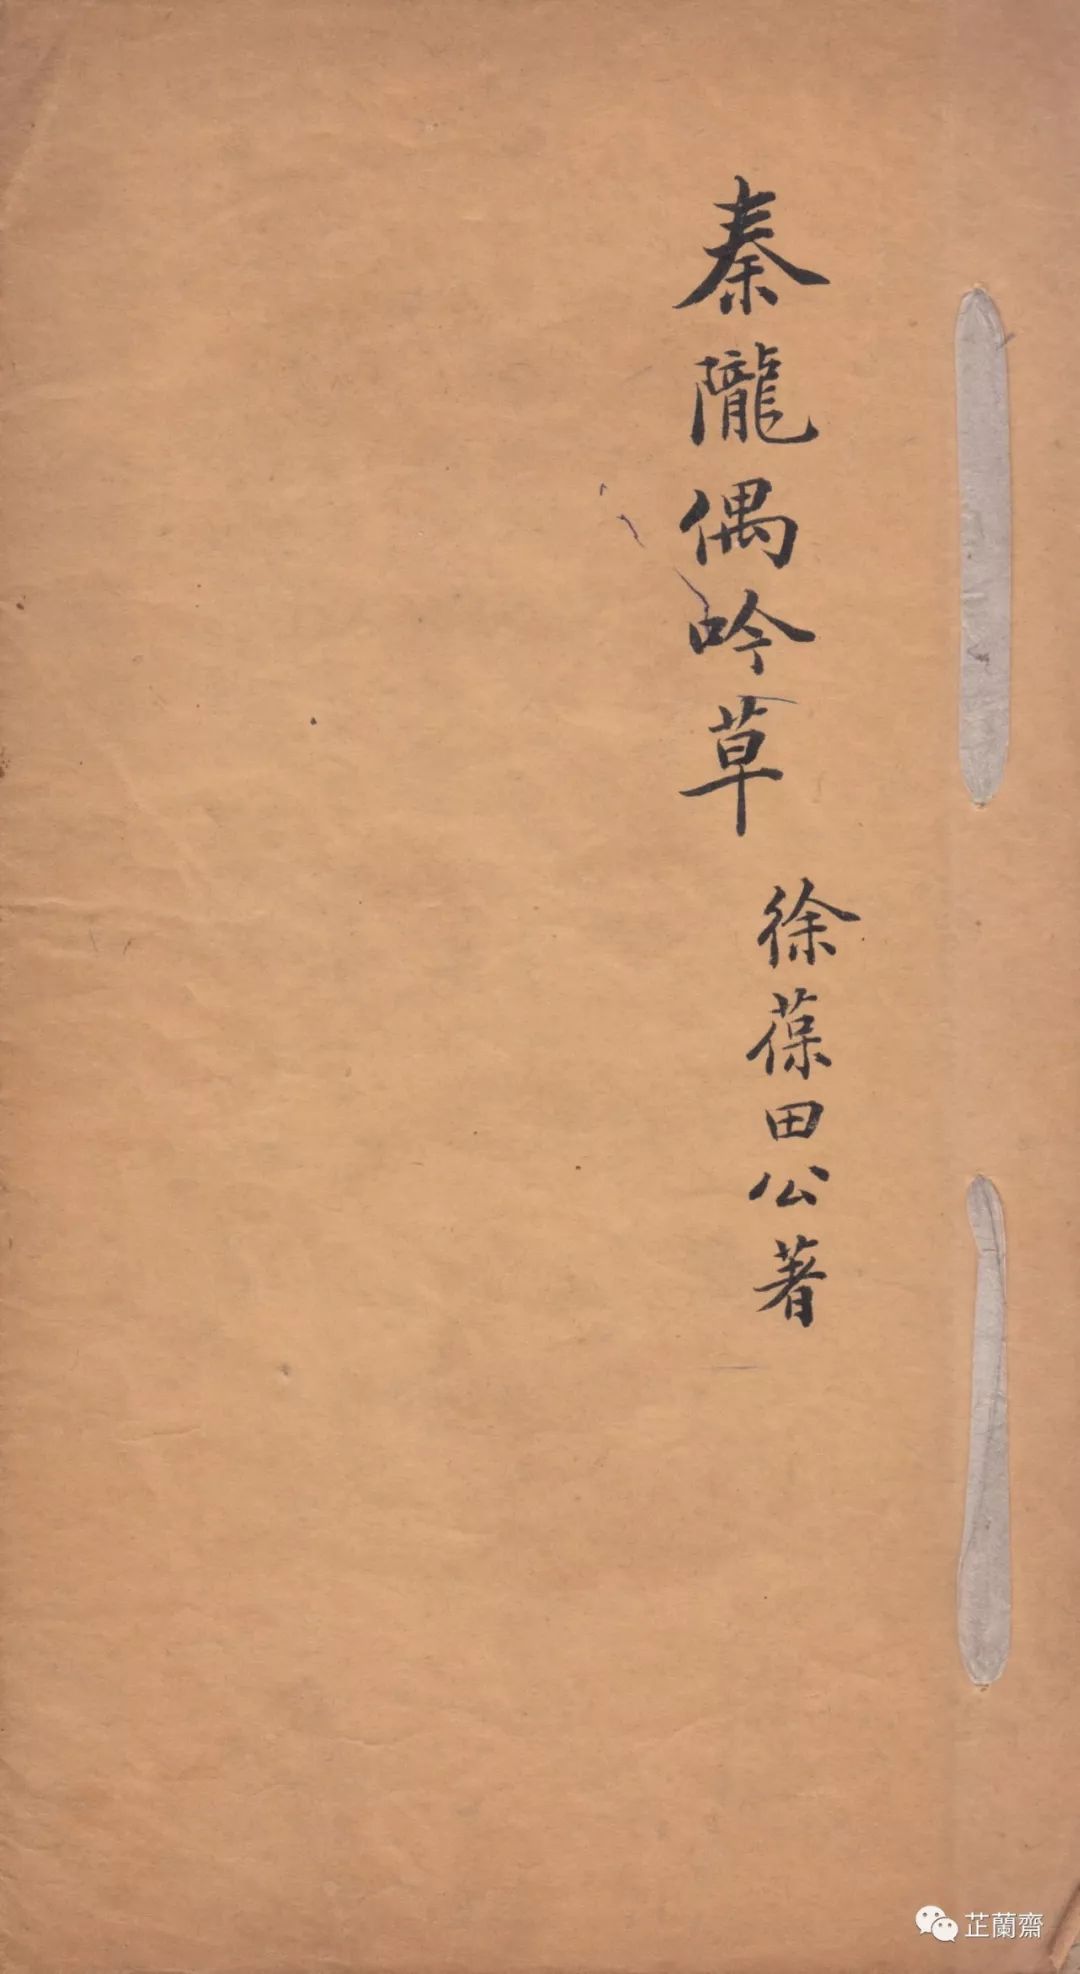 秦隴偶吟草
徐葆田公著
芷蘭齋